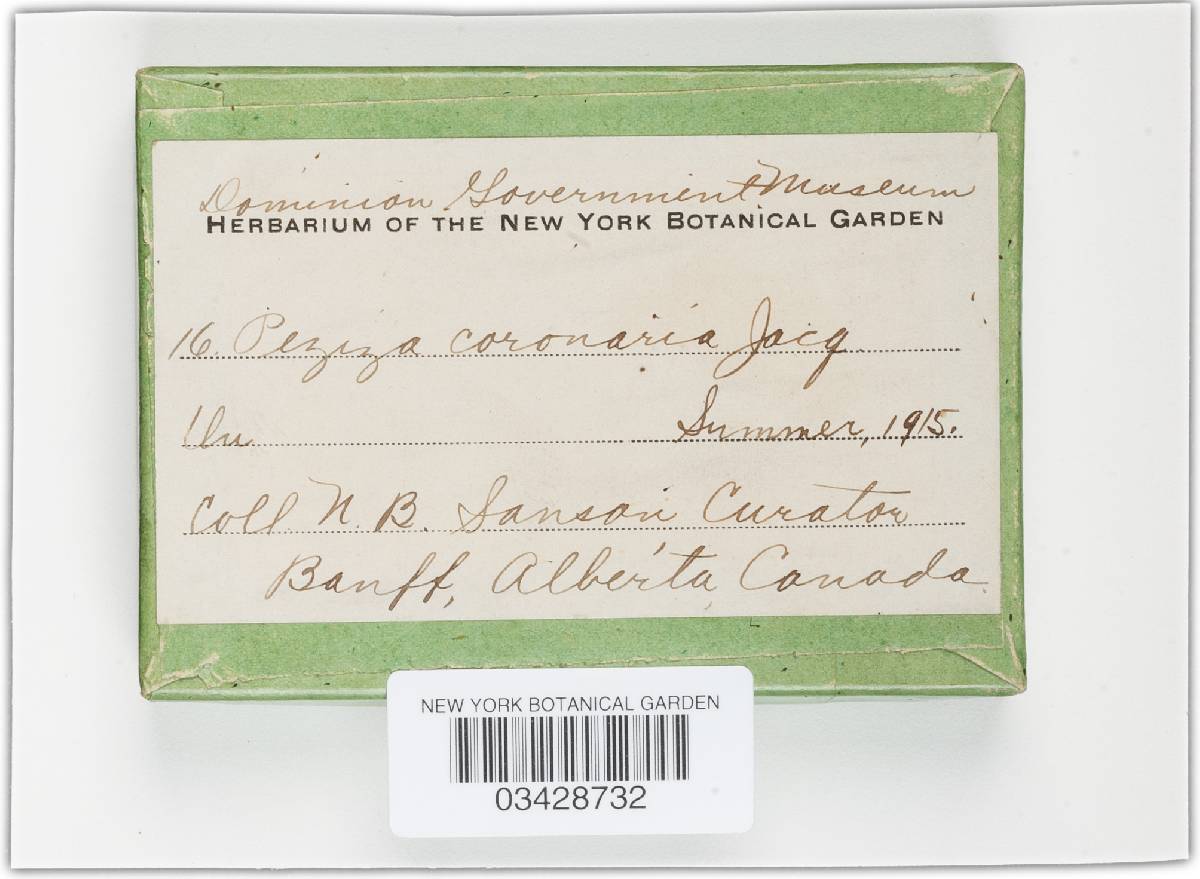 Dominion Government Museum
HERBARIUM OF THE NEW YORK BOTANICAL GARDEN
16. Peziza coronaria Jacq
Summer, 1915.
Coll N. B. Sanson Curator
Banff, Alberta, Canada.
NEW YORK BOTANICAL GARDEN
03428732